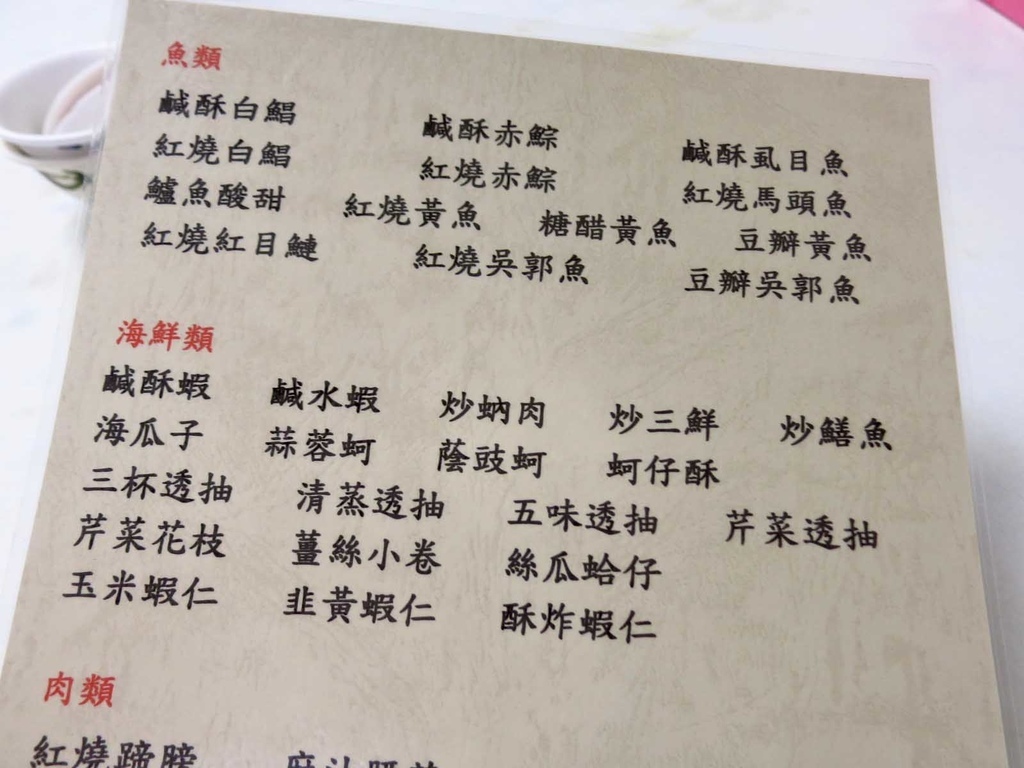 魚類
鹹酥白鯧 鹹酥赤鯮 鹹酥虱目魚
紅燒白鯧 紅燒赤鯮 紅燒馬頭魚
鱸魚酸甜 紅燒黃魚 糖醋黃魚 豆瓣黃魚
紅燒紅目鰱 紅燒吳郭魚 豆瓣吳郭魚
海鮮類
鹹酥蝦 鹹水蝦 炒蚋肉 炒三鮮 炒鱔魚
海瓜子 蒜蓉蚵 蔭豉蚵 蚵仔酥
三杯透抽 清蒸透抽 五味透抽 芹菜透抽
芹菜花枝 薑絲小卷 絲瓜蛤仔
玉米蝦仁 韭黃蝦仁 酥炸蝦仁
肉類
紅燒蹄膀